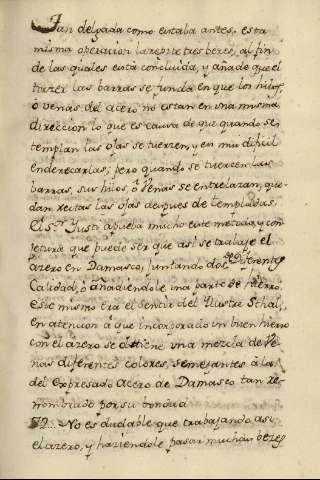 Tan delgada como estaba antes, esta
misma operacion la repite tres beces, al fin
de las quales esta concluida, y añade que el
torzer las barras se funda en que los hilos,
ò venas del acero no estan en una misma
direccion lo que es causa de que quando se
templan las ojas se tuerzen, y en mui dificil
enderecarlas; pero quando se tuercen las
barras, sus hilos, ò Venas se entrelazan, que-
dan rectas las ojas despues de templadas.
El Sr. Justi aprueba mucho este metodo, y con
jetura que puede ser que asi se trabaje el
azero en Damasco, juntando dos de diferentes
Calidad, ò añadiendole una parte de hierro.
Este mismo era el sentir del Ilustre Schal,
en atencion à que incorporado un buen hierro
con el azero se obtiene una mezcla de Ve-
nas diferentes colores, semejantes à las
del Expresado Acero de Damasco tan re-
nombrado por su bondad
32. No es dudable que trabajando asi
el azero, y haziendole pasar muchas bezes